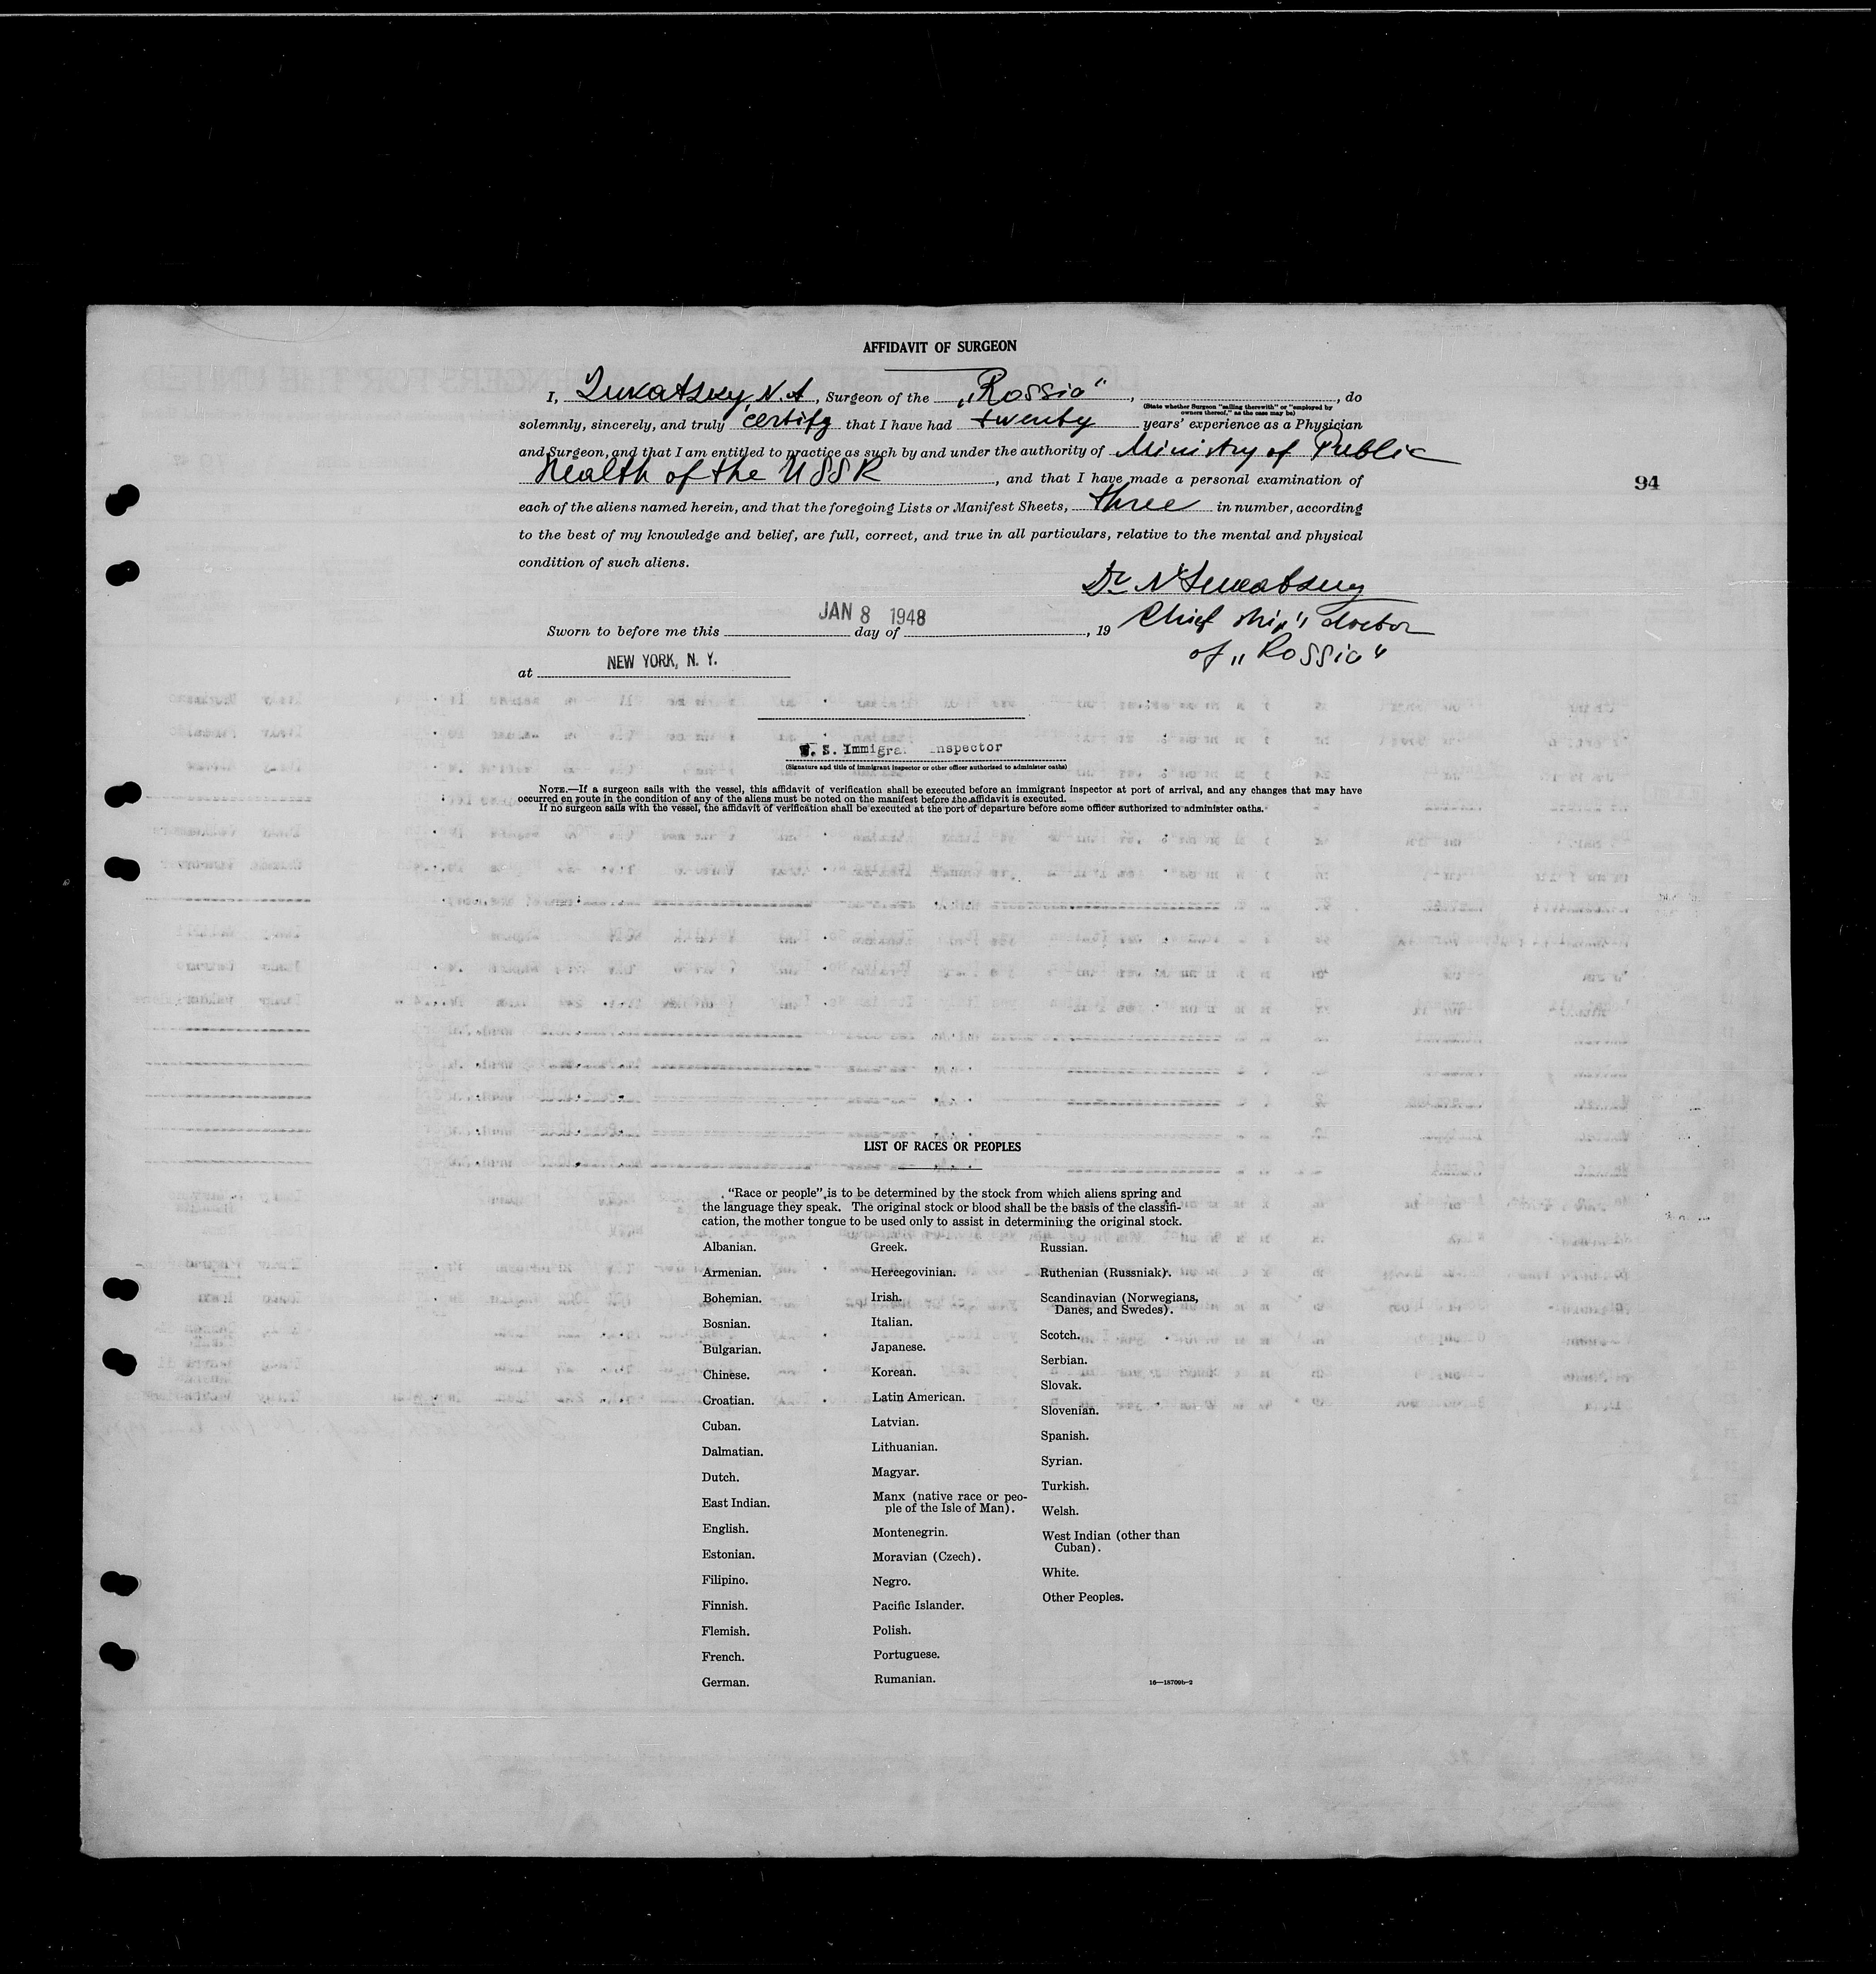 AFFIDAVIT OF SURGEON
I, Lukatsky, N. A, Surgeon of the „Rossia“, , do
(State whether Surgeon "sailing therewith" or "employed by
owners thereof," as the case may be)
solemnly, sincerely, and truly certify that I have had twenty years' experience as a Physician
and Surgeon, and that I am entitled to practice as such by and under the authority of Ministry of Public
Health of the USSR, and that I have made a personal examination of
94
each of the aliens named herein, and that the foregoing Lists or Manifest Sheets, three in number, according
to the best of my knowledge and belief, are full, correct, and true in all particulars, relative to the mental and physical
condition of such aliens.
Dr N Lukatsky
JAN 8 1948
Sworn to before me this day of , 19
Chief ship's doctor
of „Rossia“
at NEW YORK, N. Y.
U. S. Immigra nspector
(Signature and title of immigrant inspector or other officer authorized to administer oaths)
NOTE.—If a surgeon sails with the vessel, this affidavit of verification shall be executed before an immigrant inspector at port of arrival, and any changes that may have
occurred en route in the condition of any of the aliens must be noted on the manifest before the affidavit is executed.
If no surgeon sails with the vessel, the affidavit of verification shall be executed at the port of departure before some officer authorized to administer oaths.
LIST OF RACES OR PEOPLES
"Race or people" is to be determined by the stock from which aliens spring and
the language they speak. The original stock or blood shall be the basis of the classifi-
cation, the mother tongue to be used only to assist in determining the original stock.
Albanian.
Armenian.
Bohemian.
Bosnian.
Bulgarian.
Chinese.
Croatian.
Cuban.
Dalmatian.
Dutch.
East Indian.
English.
Estonian.
Filipino.
Finnish.
Flemish.
French.
German.
Greek.
Hercegovinian.
Irish.
Italian.
Japanese.
Korean.
Latin American.
Latvian.
Lithuanian.
Magyar.
Manx (native race or peo-
ple of the Isle of Man).
Montenegrin.
Moravian (Czech).
Negro.
Pacific Islander.
Polish.
Portuguese.
Rumanian.
Russian.
Ruthenian (Russniak).
Scandinavian (Norwegians,
Danes, and Swedes).
Scotch.
Serbian.
Slovak.
Slovenian.
Spanish.
Syrian.
Turkish.
Welsh.
West Indian (other than
Cuban).
White.
Other Peoples.
16—18709b-2